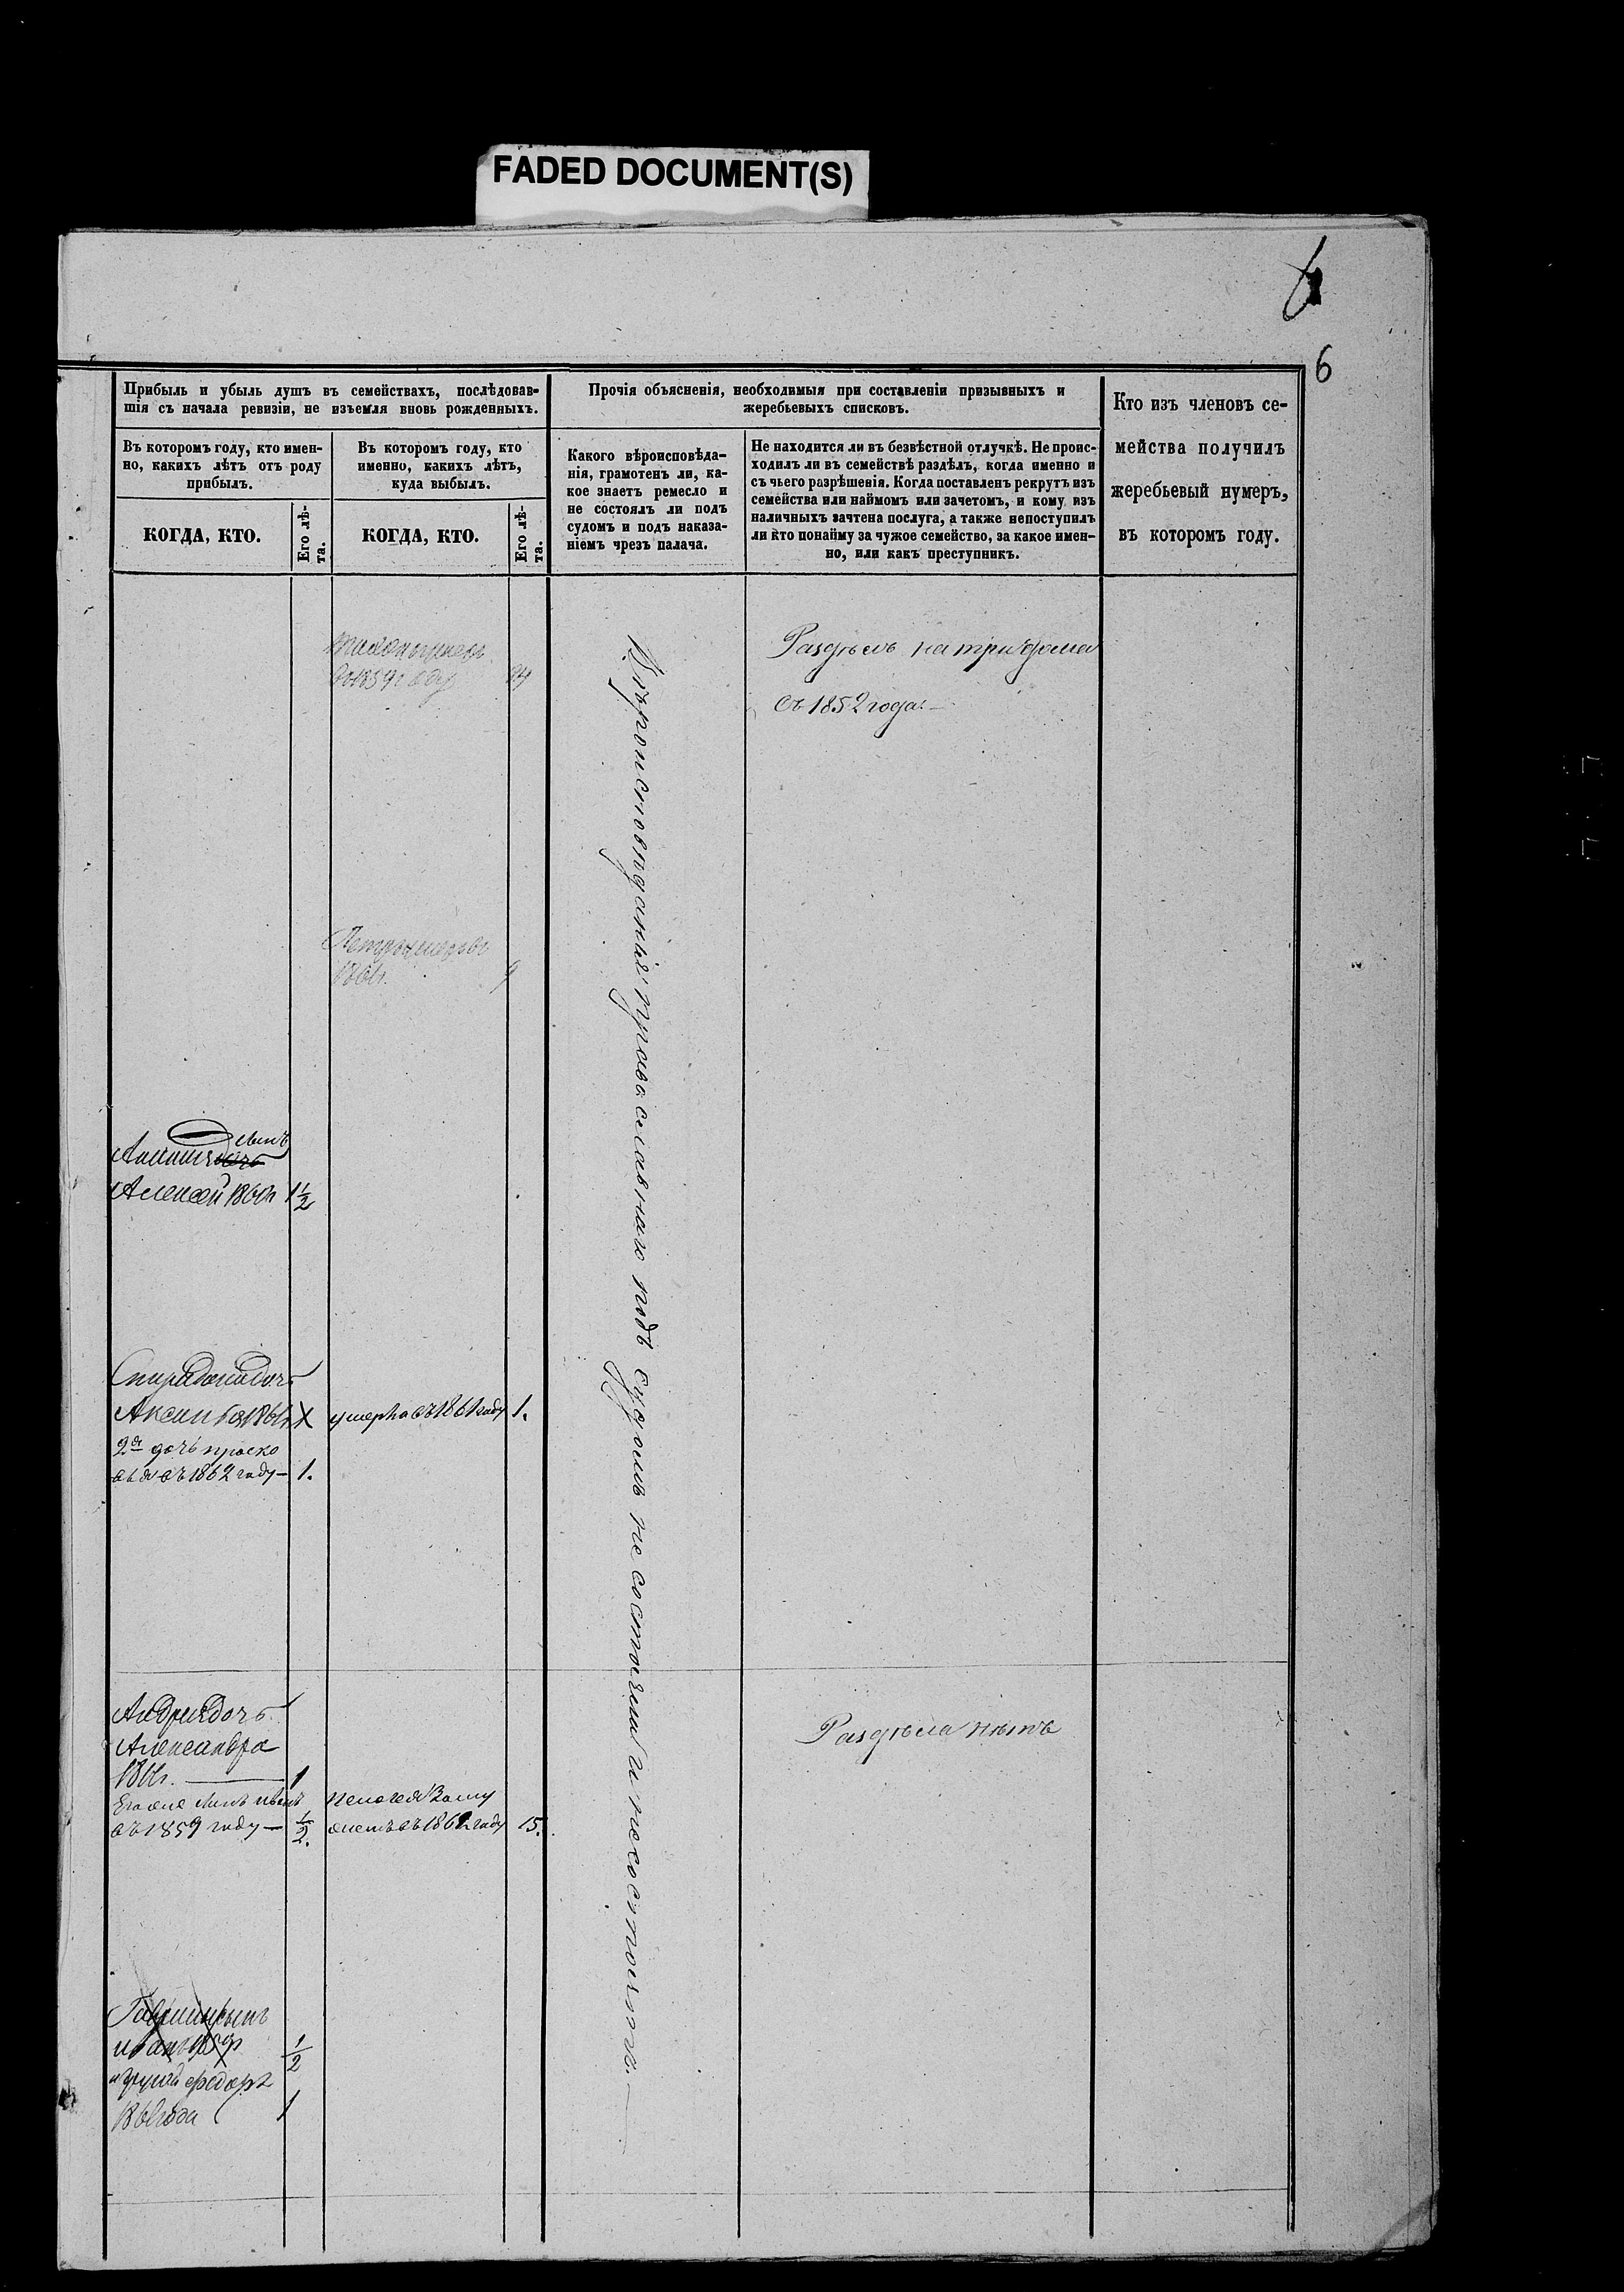 FADED DOCUMENT(S)
6
6
Прибыль и убыль душъ въ семействахъ, послѣдовав-
шія съ начала ревизіи, не изъемля вновь рожденныхъ.
Въ которомъ году, кто имен-
но, какихъ лѣтъ отъ роду
прибылъ.
КОГДА, КТО.
Его лѣ-
та.
Въ которомъ году, кто
именно, какихъ лѣтъ,
куда выбылъ.
КОГДА, КТО.
Его лѣ-
та.
Прочія объясненія, необходимыя при составленіи призывныхъ и
жеребьевыхъ списковъ.
Какого вѣроисповѣда-
нія, грамотенъ ли, ка-
кое знаетъ ремесло и
не состоялъ ли подъ
судомъ и подъ наказа-
ніемъ чрезъ палача.
Не находится ли въ безвѣстной отлучкѣ. Не проис-
ходилъ ли въ семействѣ раздѣлъ, когда именно и
съ чьего разрѣшенія. Когда поставленъ рекрутъ изъ
семейства или наймомъ или зачетомъ, и кому изъ
наличныхъ зачтена послуга, а также непоступилъ
ли кто понайму за чужое семейство, за какое имен-
но, или какъ преступникъ.
Кто изъ членовъ се-
мейства получилъ
жеребьевый нумеръ,
въ которомъ году.
1859 году
Раздѣлъ на три дома
съ 1852 года.—
Вѣроисповѣданія православнаго подъ судомъ не состояли и не состоятъ.—
Петръ умеръ въ
1861г. 9
сынъ
Алексѣй 1860г 1 1/2
дочь
Аксинья 1861г X умерла въ 1861 году 1.
2я дочь праско
вья въ 1862 году — 1.
Андрея дочь
Александра
1861г. — 1
Раздѣла нѣтъ
Егоже сынъ иванъ
въ 1859 году — 1/2.
въ 1862 году 15.
Гаврилы сынъ
иванъ 1859г 1/2
и другой федоръ
1861 года 1